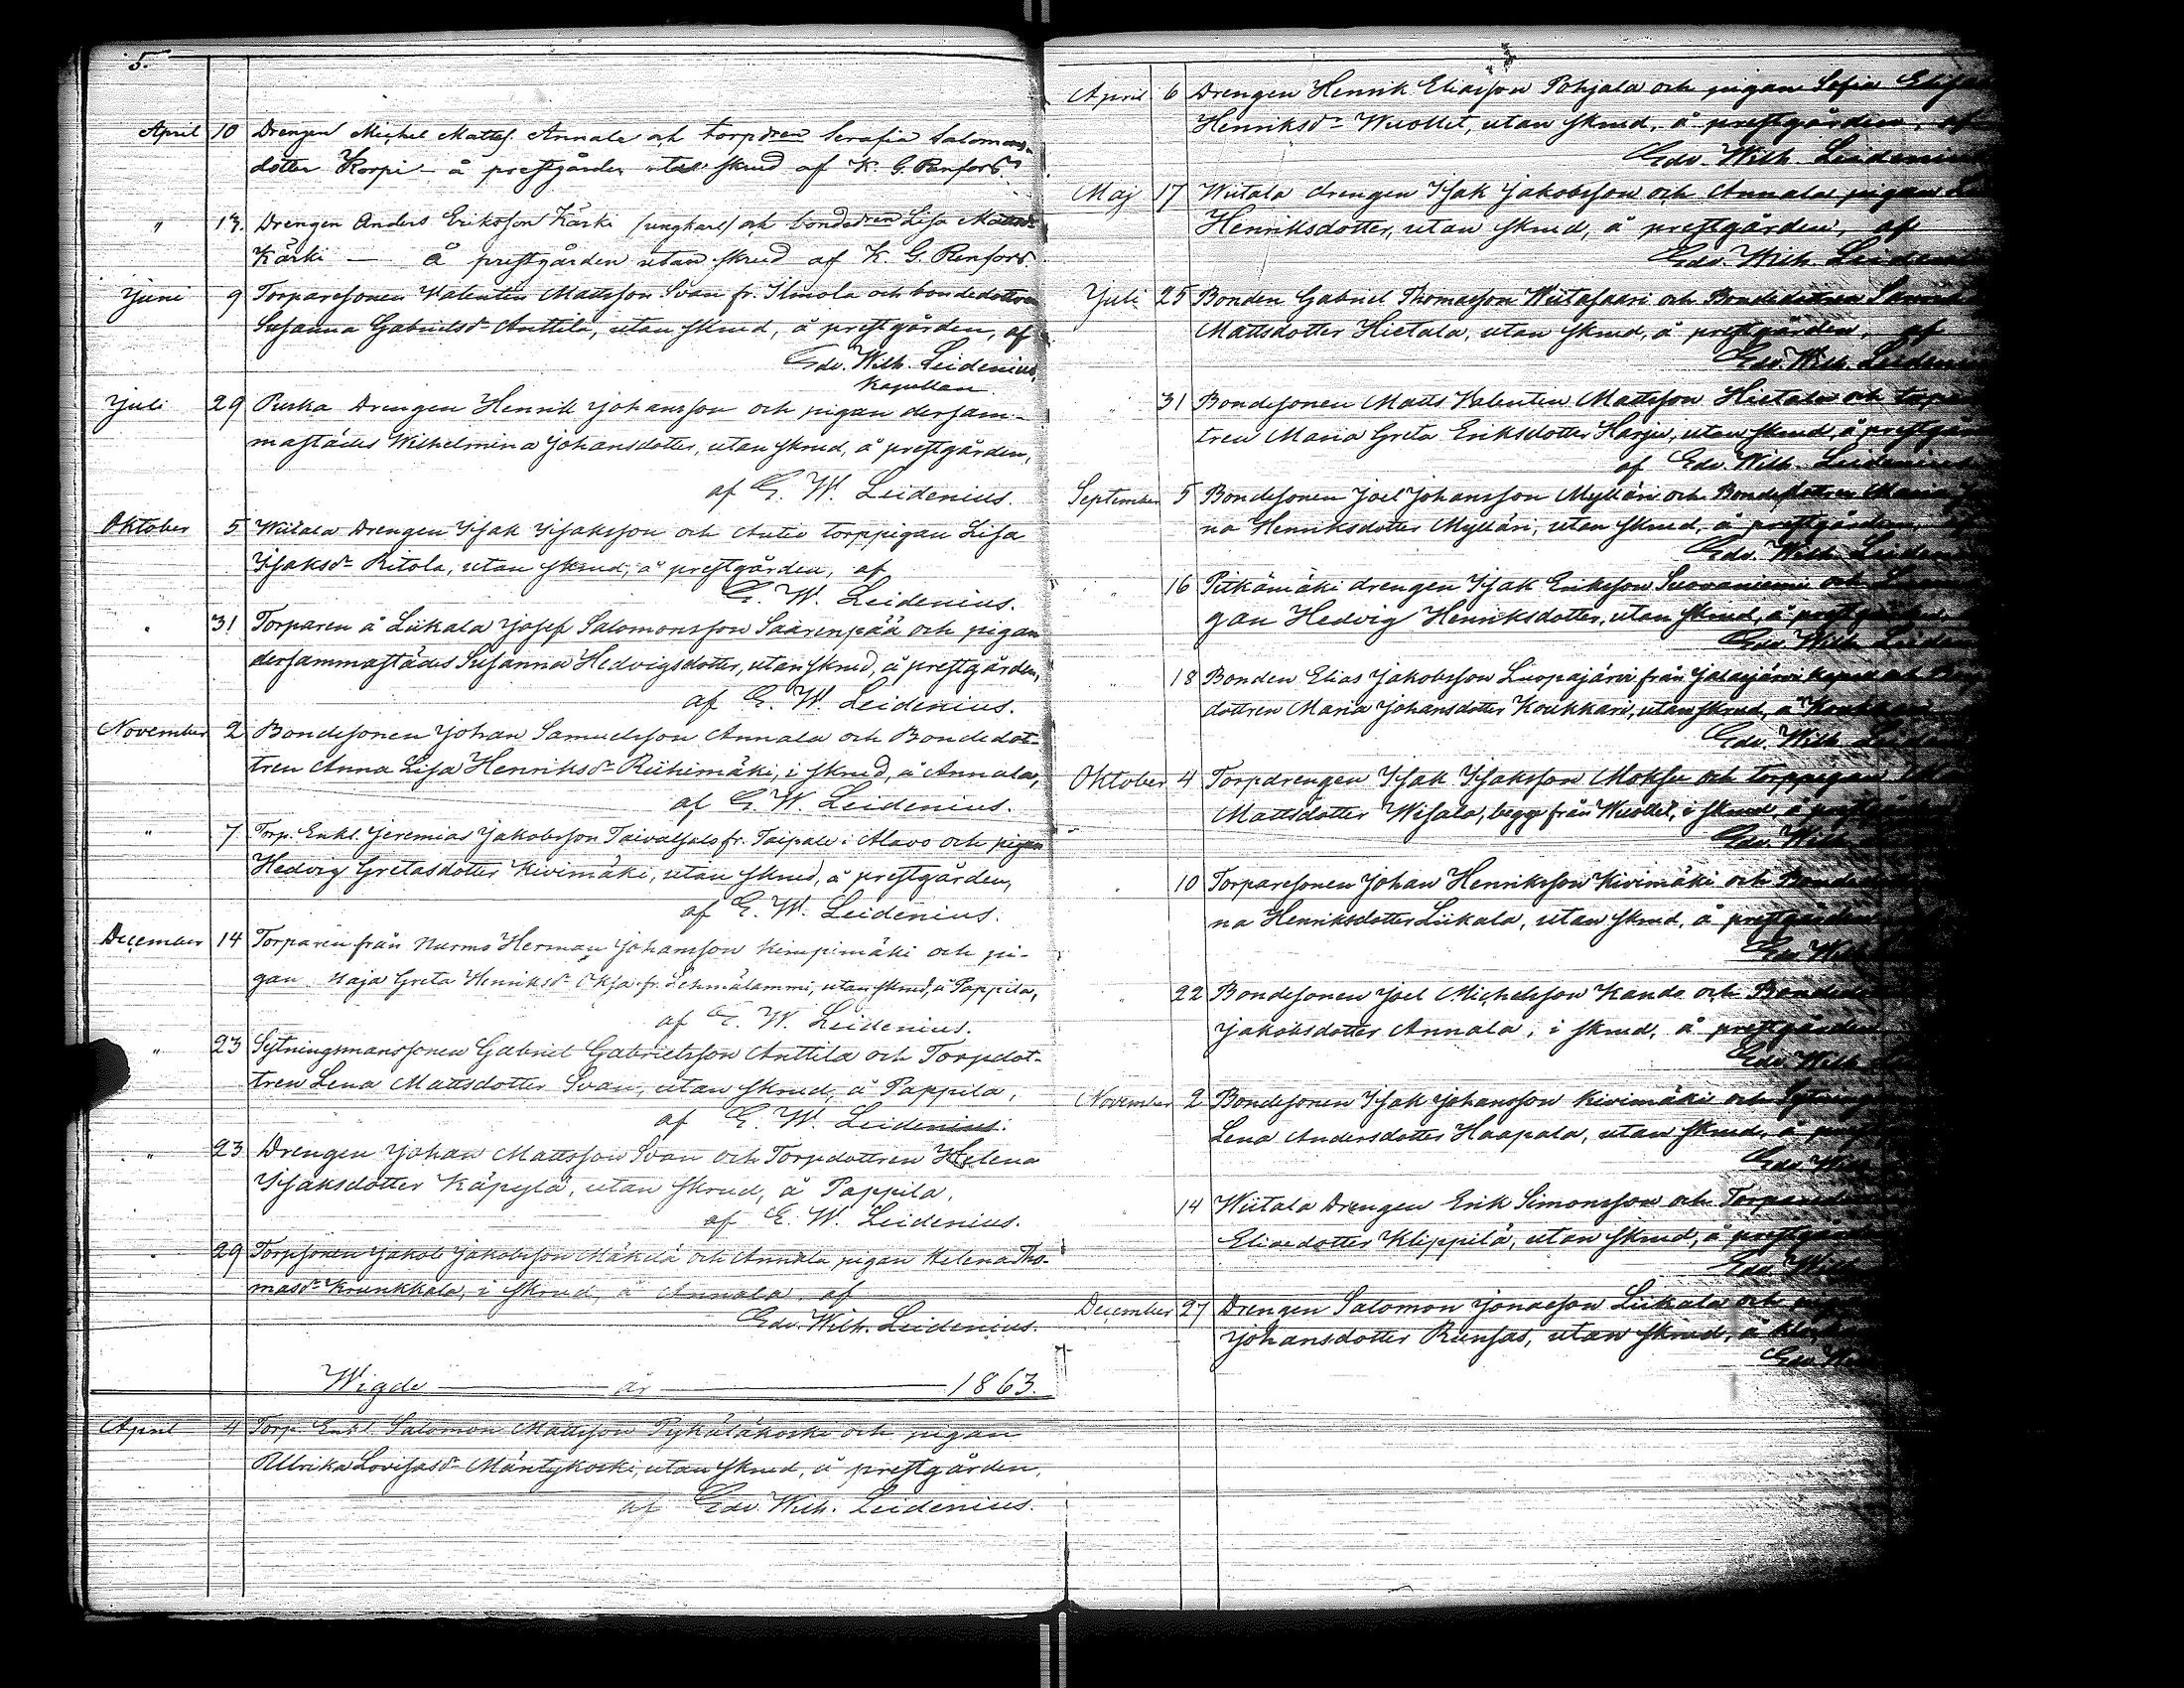 5.
April 10 Drengen Michel Mattss. Annala och torpdren Serafia Salomons-
dotter Korpi — å prestgården utan skrud af K. G. Renfors.
" 13. Drengen Anders Eriksson Kärki (ungkarl) och bondedren Lisa Mattsdr
Kärki — å prestgården utan skrud af K. G. Renfors.
Juni 9 Torparesonen Valentin Mattsson Svan fr. Ilmola och bondedottren
Susanna Gabrielsdr Anttila, utan skrud, å prestgården, af
Edv. Wilh. Leidenius,
Kapellan
Juli 29 Ruska Drengen Henrik Johansson och pigan dersam-
mastädes Wilhelmina Johansdotter, utan skrud, å prestgården,
af E. W. Leidenius.
Oktober 5 Wiitala Drengen Isak Isaksson och Autio torppigan Lisa
Isaksdr Ritola, utan skrud, å prestgården, af
E. W. Leidenius.
" 31 Torparen å Liikala Josef Salomonsson Saarenpää och pigan
dersammastädes Susanna Hedvigsdotter, utan skrud, å prestgården,
af E. W. Leidenius.
November 2 Bondesonen Johan Samuelsson Annala och Bondedot-
tren Anna Lisa Henriksdr Riihimäki, i skrud, å Annala,
af E. W. Leidenius.
" 7 Torp. Enkl. Jeremias Jakobsson Taivalsalo fr. Taipale i Alavo och pigan
Hedvig Gretasdotter Kivimäki, utan skrud, å prestgården,
af E. W. Leidenius.
December 14 Torparen från Nurmo Herman Johansson Kimpimäki och pi-
gan Maja Greta Henriksdr Oksa fr. Lehmälammi, utan skrud, å Pappila,
af E. W. Leidenius.
" 23 Sytningsmanssonen Gabriel Gabrielsson Anttila och Torpdot-
tren Lena Mattsdotter Svan, utan skrud, å Pappila,
af E. W. Leidenius.
" 23 Drengen Johan Mattsson Svan och Torpdottren Helena
Isaksdotter Käpylä, utan skrud, å Pappila,
af E. W. Leidenius.
" 29 Torpsonen Jakob Jakobsson Mäkelä och Annala pigan Helena Tho-
masdr Krunkkala, i skrud, å Annala, af
Edv. Wilh. Leidenius.
Wigde — år — 1863.
April 4 Torp. Enkl. Salomon Mattsson Pykäläkoski och pigan
Ullrika Lovisasdr Mäntykoski, utan skrud, å prestgården,
af Edv. Wilh. Leidenius.
April 6 Drengen Henrik Eliasson Pohjala och pigan Sofia
Henriksdr Wuollet, utan skrud, å prestgården, af
Edv. Wilh. Leidenius
Maj 17 Wiitala drengen Isak Jakobsson och Annala pigan
Henriksdotter, utan skrud, å prestgården, af
Edv. Wilh. Leidenius
Juli 25 Bonden Gabriel Thomasson Wiitasaari och Bondedottren
Mattsdotter Hietala, utan skrud, å prestgården, af
Edv. Wilh. Leidenius
" 31 Bondesonen Matts Valentin Mattsson Hietala och
tren Maria Greta Eriksdotter Harju, utan skrud, å
af Edv. Wilh. Leidenius
September 5 Bondesonen Joel Johansson Mylläri och Bondedottren Maria
na Henriksdotter Mylläri, utan skrud, å prestgården,
Edv. Wilh. Leidenius
" 16 Pitkämäki drengen Isak Eriksson Suovaniemi och
gan Hedvig Henriksdotter, utan skrud, å
Edv. Wilh.
" 18 Bonden Elias Jakobsson Luopajärvi från Jalasjärvi kapell och
dottren Maria Johansdotter Koukkari, utan skrud, å
Edv. Wilh.
Oktober 4 Torpdrengen Isak Isaksson Moksu och torppigan
Mattsdotter Wisala, begge från Wuollet, i skrud, å
Edv. Wilh.
" 10 Torparesonen Johan Henriksson Kivimäki och
na Henriksdotter Liikala, utan skrud, å prestgården
Edv. Wilh.
" 22 Bondesonen Joel Michelsson Kando och
Jakobsdotter Annala, i skrud, å prestgården
Edv. Wilh.
November 2 Bondesonen Isak Johansson Kivimäki och
Lena Andersdotter Haapala, utan skrud, å
Edv. Wilh.
" 14 Wiitala Drengen Erik Simonsson och
Eliaedotter Klippilä, utan skrud, å
Edv. Wilh.
December 27 Drengen Salomon Jonasson Liikala och
Johansdotter Runsas, utan skrud, å
Edv.